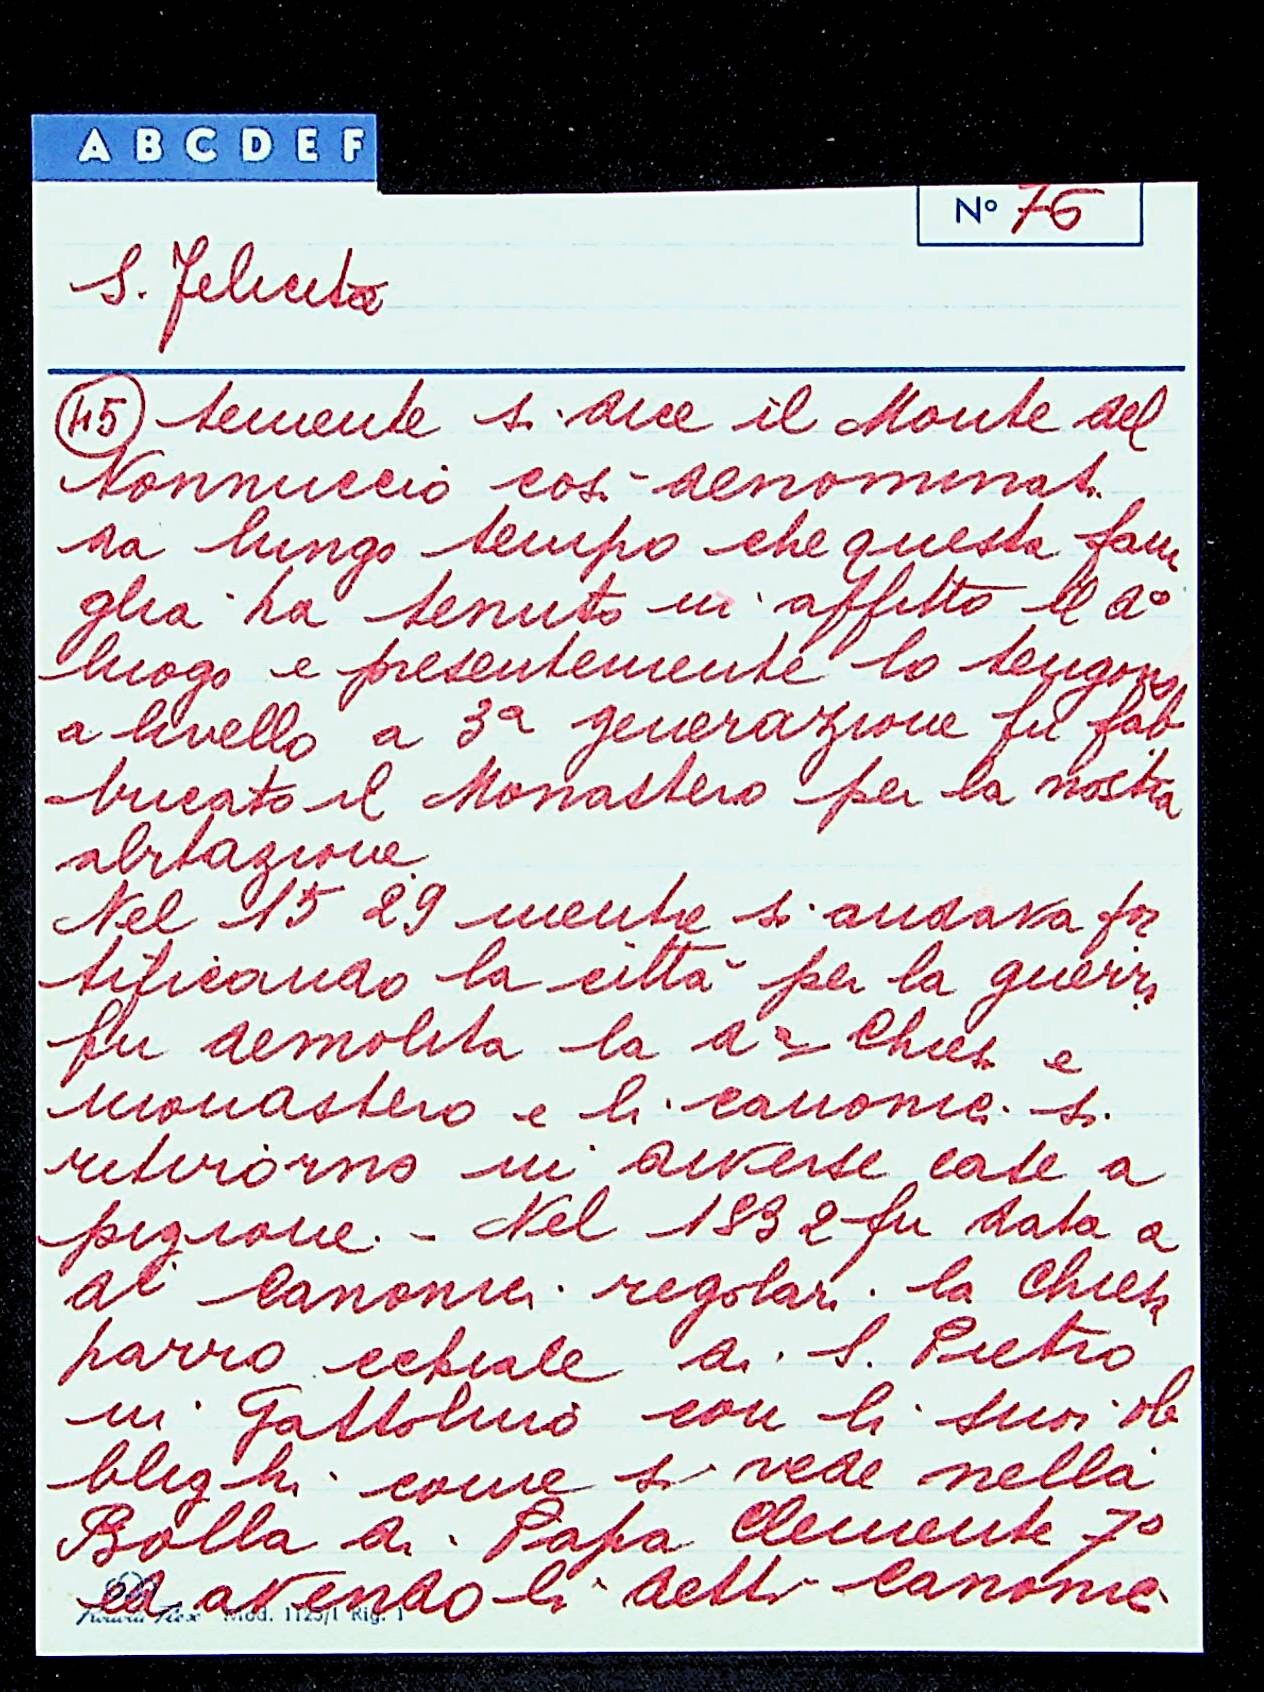 A B C D E F
N° 76
S. Felicita
45 temente si dice il Monte del
Nonnuccio così denominat
da lungo tempo che questa fam
glia ha tenuto in affitto il d°
luogo e presentemente lo tengono
a livello a 3ª generazione fu fab
bricato il Monastero per la nostra
abitazione.
Nel 1529 mentre si andava for
tificando la città per la guerra
fu demolita la dª Chiesa e
monastero e li canonici si
ritirorno in diverse case a
pigione. - Nel 1832 fu data a
di Canonici regolari la Chiesa
parro cchiale di S. Pietro
in Gattolino con li suoi ob
blighi come si vede nella
Bolla di Papa Clemente 7°
ed avendo li detti Canonici
Mod. 1125/1 Rig. 1